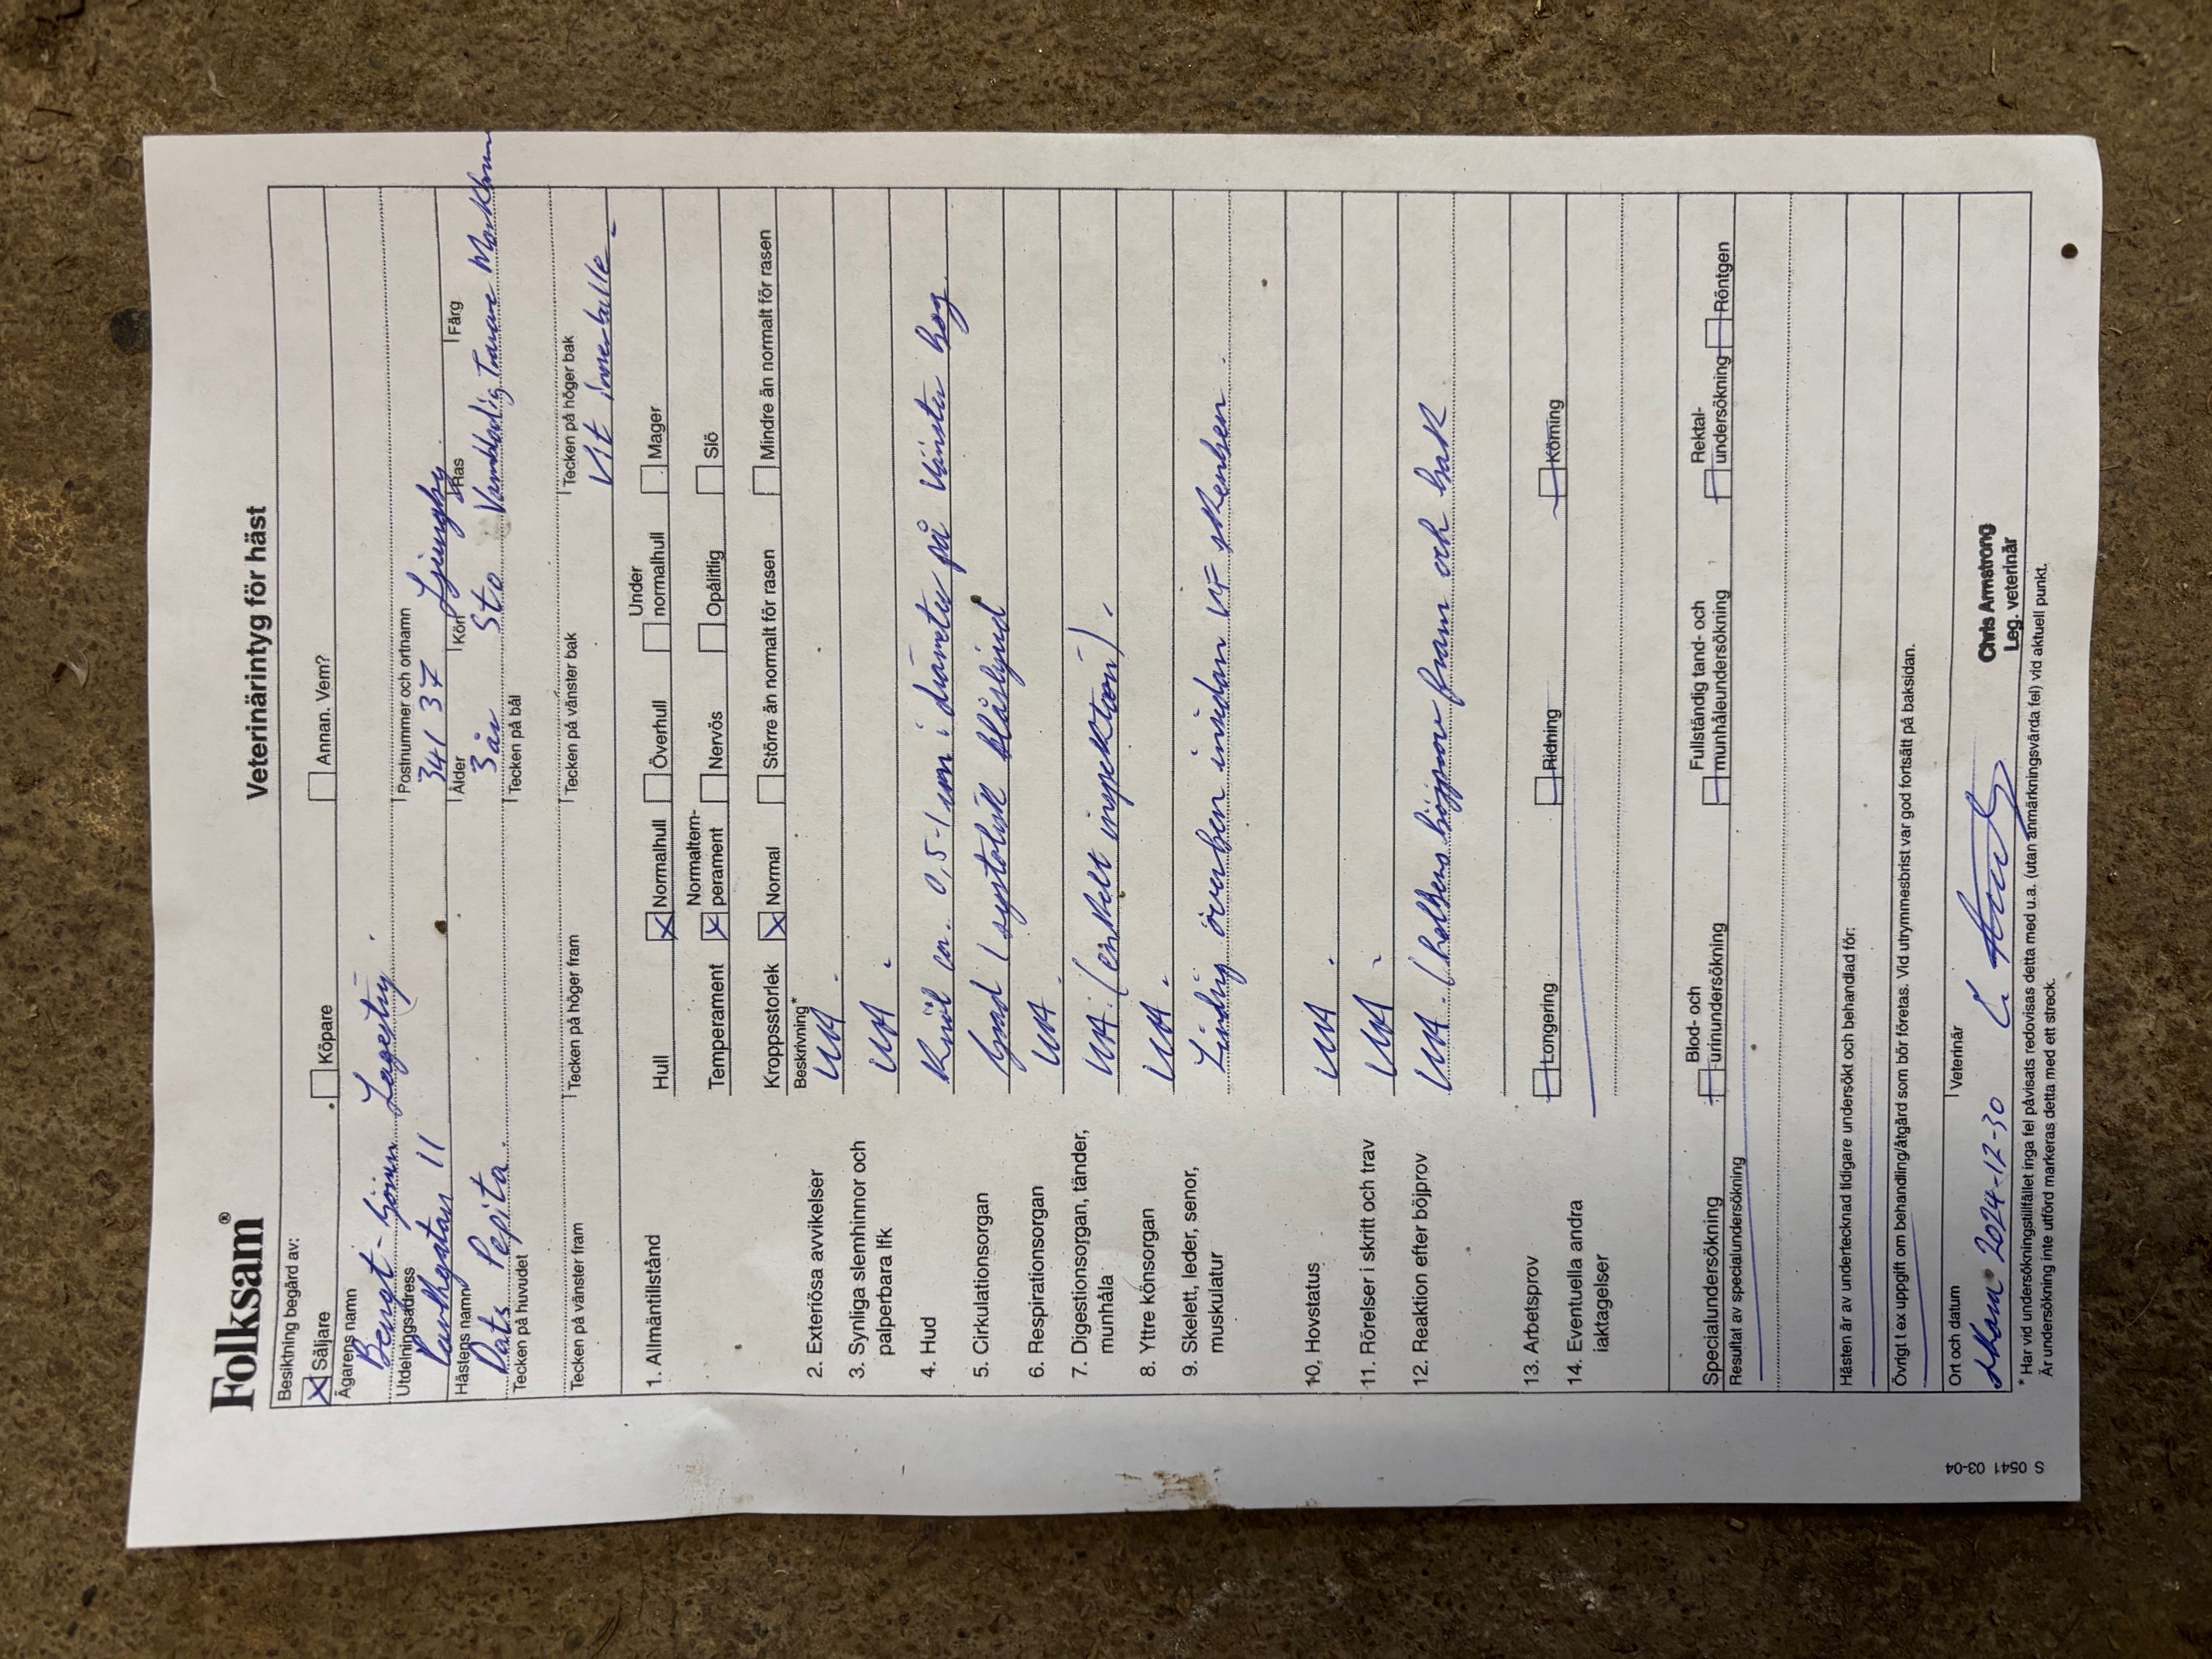 Folksam®
Veterinärintyg för häst
Besiktning begärd av:
☒ Säljare ☐ Köpare ☐ Annan. Vem?
Ägarens namn
Bengt-Björn
Utdelningsadress Postnummer och ortnamn
11 341 37 Ljungby
Hästens namn Ålder Kön Ras Färg
Dats Pepita. 3 år Sto Varmblodig Travare
Tecken på huvudet Tecken på bål
Tecken på vänster fram Tecken på höger fram Tecken på vänster bak Tecken på höger bak
Vit innerballe
1. Allmäntillstånd Hull ☒ Normalhull ☐ Överhull ☐ Under normalhull ☐ Mager
Temperament ☒ Normaltem-perament ☐ Nervös ☐ Opålitlig ☐ Slö
Kroppsstorlek ☒ Normal ☐ Större än normalt för rasen ☐ Mindre än normalt för rasen
Beskrivning*
2. Exteriösa avvikelser UA.
3. Synliga slemhinnor och UA.
palperbara lfk
4. Hud Knöl ca. 0,5-1 cm i diameter på vänster bog.
5. Cirkulationsorgan Grad 1 systoliskt blåsljud
6. Respirationsorgan UA.
7. Digestionsorgan, tänder, UA. (enkelt inspektion).
munhåla
8. Yttre könsorgan UA.
9. Skelett, leder, senor, Lindrig överben insidan VF skenben.
muskulatur
10. Hovstatus UA.
11. Rörelser i skritt och trav UA.
12. Reaktion efter böjprov UA. (helbens böjprov fram och bak
13. Arbetsprov ☐ Longering ☐ Ridning ☐ Körning
14. Eventuella andra
iaktagelser
Specialundersökning ☐ Blod- och urinundersökning ☐ Fullständig tand- och munhåleundersökning ☐ Rektal-undersökning ☐ Röntgen
Resultat av specialundersökning
Hästen är av undertecknad tidigare undersökt och behandlad för:
Övrigt t ex uppgift om behandling/åtgärd som bör företas. Vid utrymmesbrist var god fortsätt på baksidan.
Ort och datum Veterinär
2024-12-30
Chris Armstrong
Leg. veterinär
* Har vid undersökningstillfället inga fel påvisats redovisas detta med u.a. (utan anmärkningsvärda fel) vid aktuell punkt.
Är undersökning inte utförd markeras detta med ett streck.
S 0541 03-04